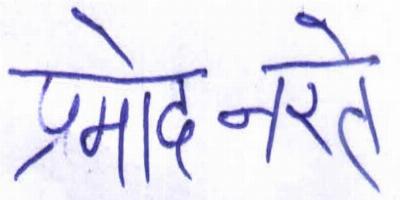 प्रमोद नरते